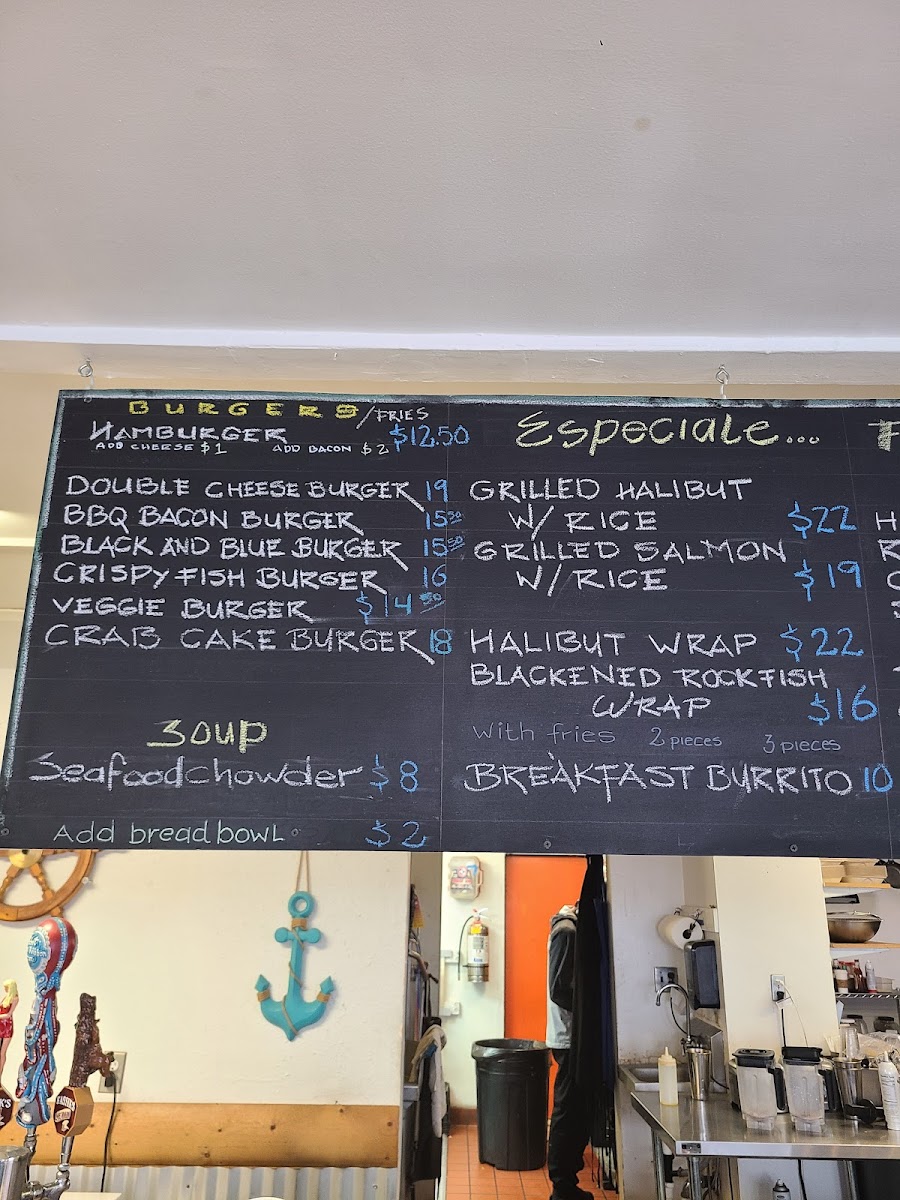 BURGERS /FRIES
HAMBURGER $12.50
ADD CHEESE $1 ADD BACON $2
DOUBLE CHEESE BURGER 19
BBQ BACON BURGER 15.50
BLACK AND BLUE BURGER 15.50
CRISPY FISH BURGER 16
VEGGIE BURGER $14.50
CRAB CAKE BURGER 18
SOUP
Seafood chowder $8
Add bread bowl $2
Especiale...
GRILLED HALIBUT
W/ RICE $22
GRILLED SALMON
W/ RICE $19
HALIBUT WRAP $22
BLACKENED ROCKFISH
WRAP $16
with fries 2 pieces 3 pieces
BREAKFAST BURRITO 10